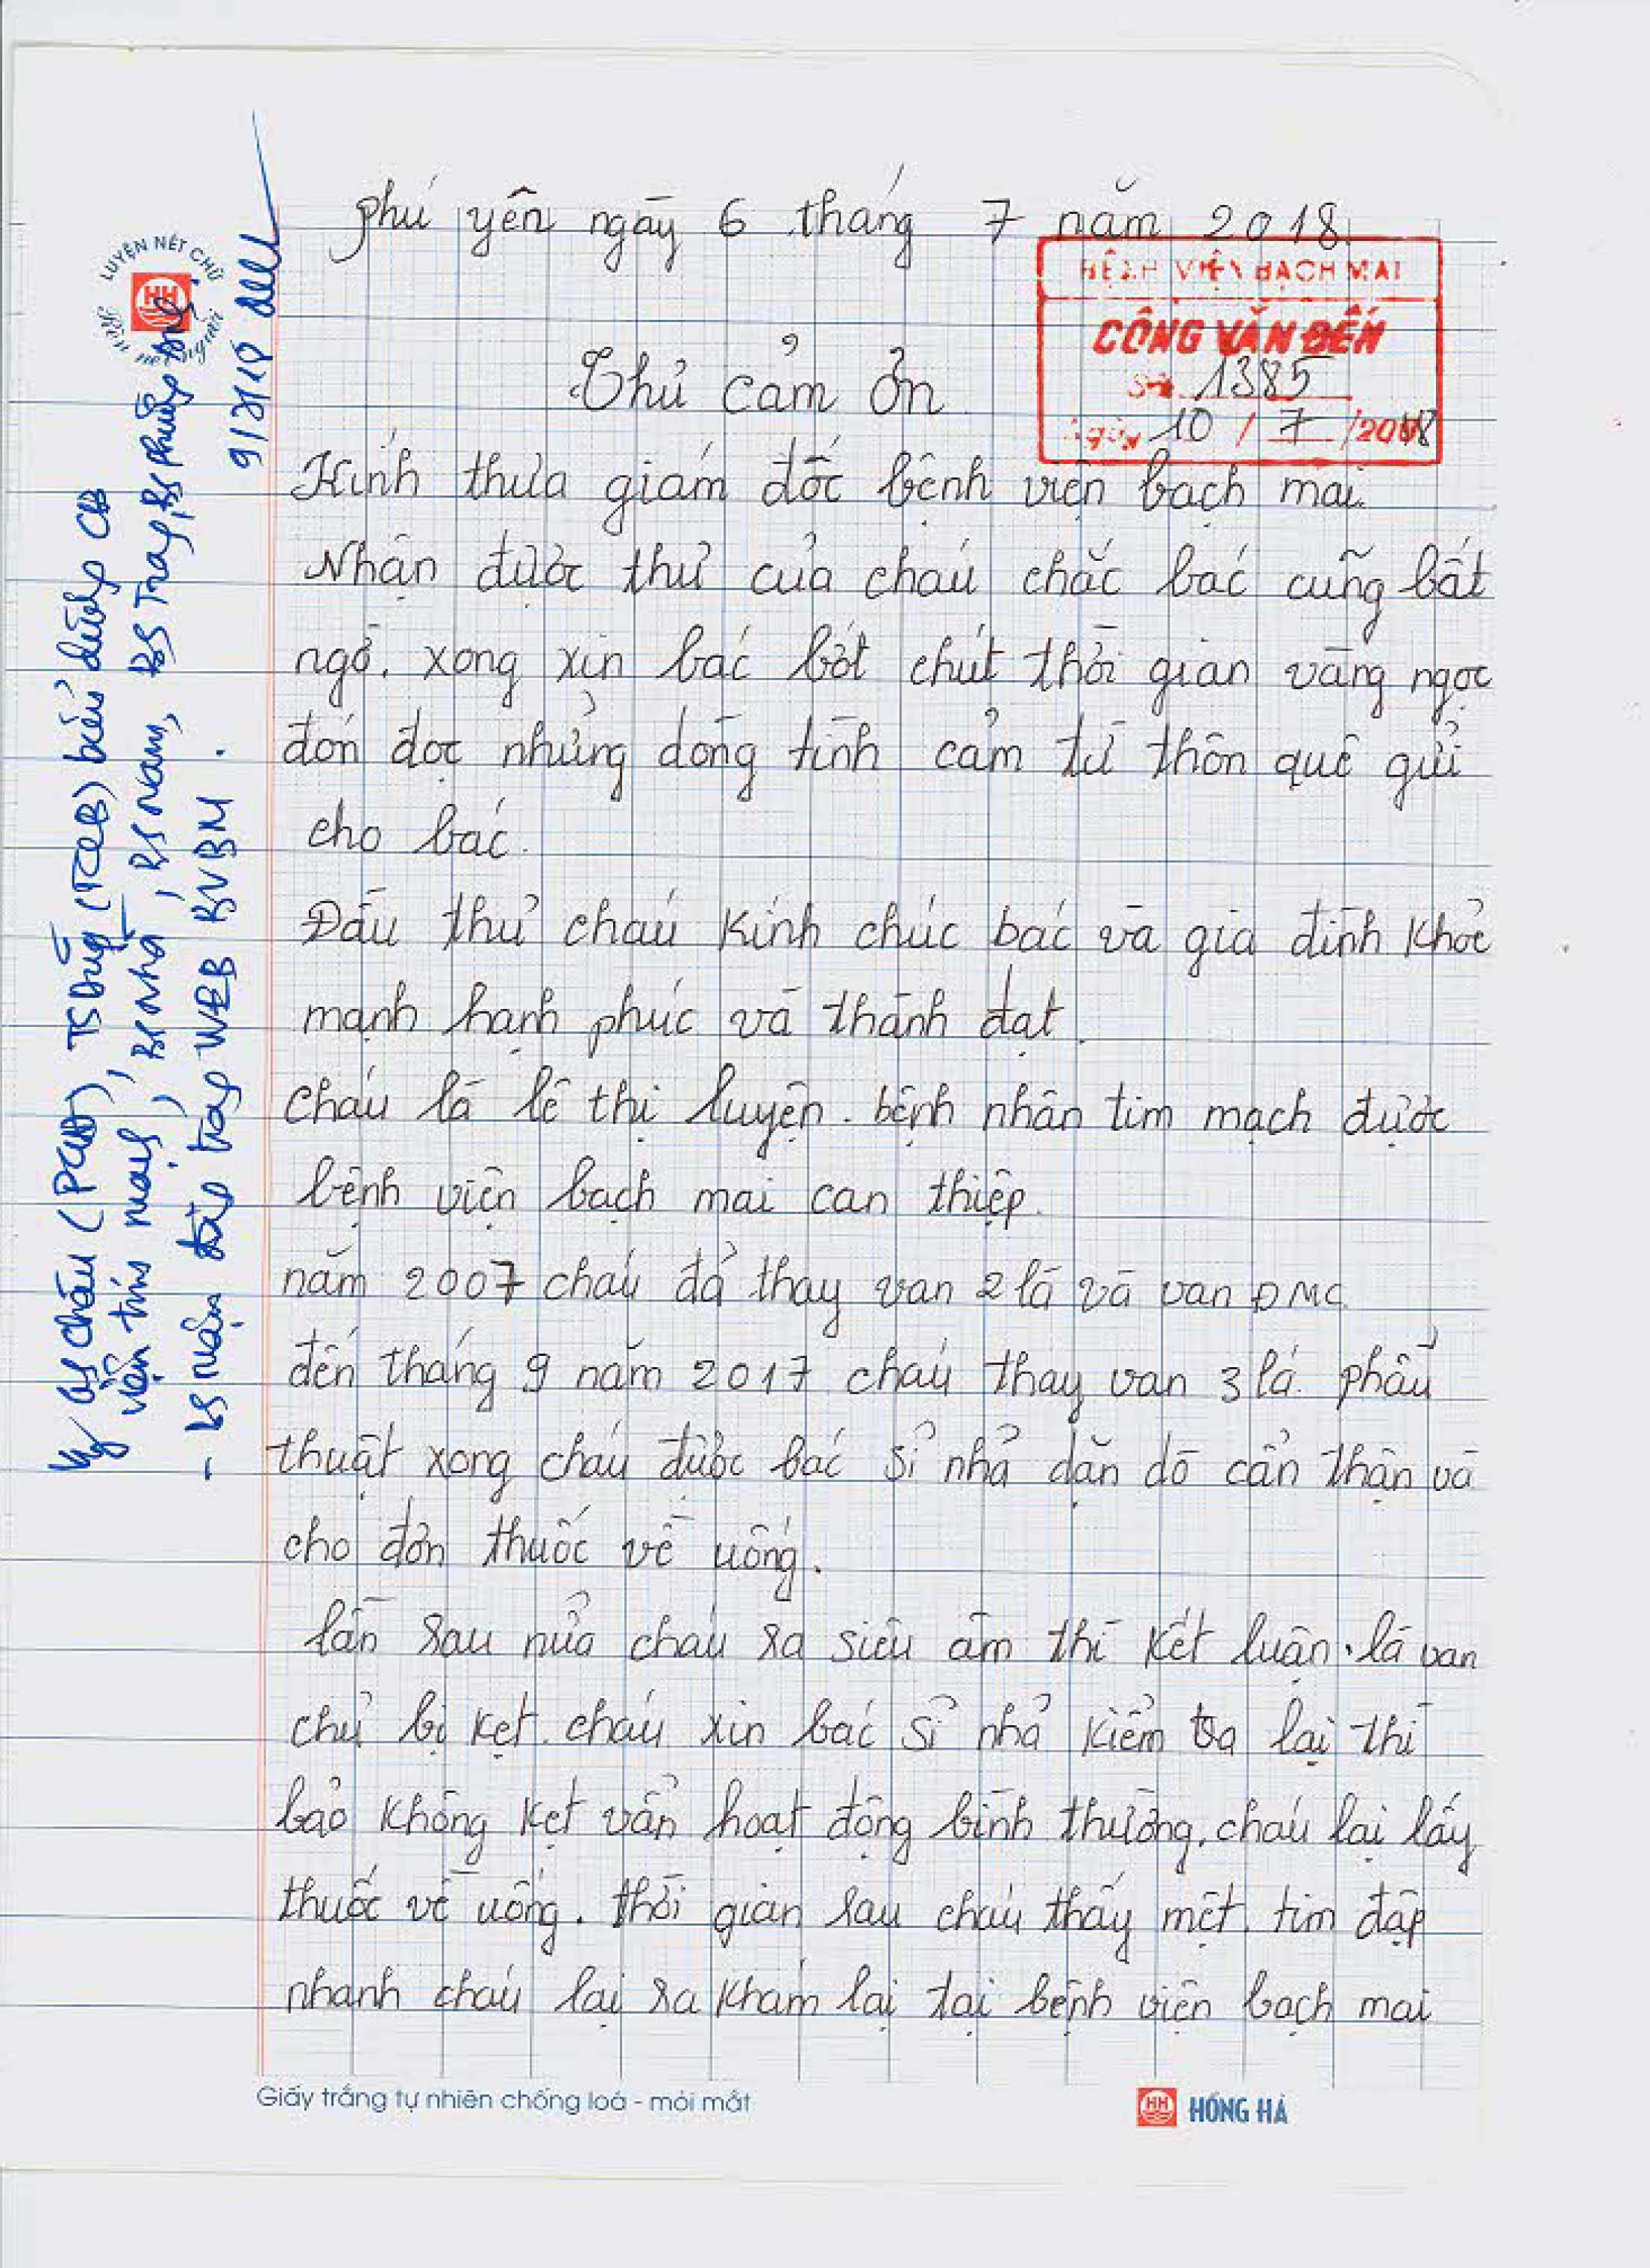 phú yên ngày 6 tháng 7 năm 2018
BỆNH VIỆN BẠCH MAI
CÔNG VĂN ĐẾN
Số 1385
Ngày 10 / 7 /2018
LUYỆN NÉT CHỮ
HH
Thư cảm ơn
Kính thưa giám đốc bệnh viện bạch mai.
Nhận được thư của cháu chắc bác cũng bất
ngờ. xong xin bác bớt chút thời gian vàng ngọc
đón đọc những dòng tình cảm từ thôn quê gửi
cho bác.
Đầu thư cháu kính chúc bác và gia đình khỏe
mạnh hạnh phúc và thành đạt.
cháu là lê thị luyện. bệnh nhân tim mạch được
bệnh viện bạch mai can thiệp.
năm 2007 cháu đả thay van 2 lá và van ĐMC
đến tháng 9 năm 2017 cháu thay van 3 lá. phẩu
thuật xong cháu được bác sỉ nhả dặn dò cẩn thận và
cho đơn thuốc về uống.
lần sau nửa cháu ra siêu âm thì kết luận. lá van
chử bị kẹt. cháu xin bác sỉ nhả kiểm tra lại thì
bảo không kẹt vẩn hoạt động bình thường. cháu lại lấy
thuốc về uống. thời gian sau cháu thấy mệt. tim đập
nhanh cháu lại ra khám lại tại bệnh viện bạch mai
9/7/18
biểu dương
- đăng trang WEB BVBM.
Giấy trắng tự nhiên chống loá - mỏi mắt
HH HỒNG HÀ